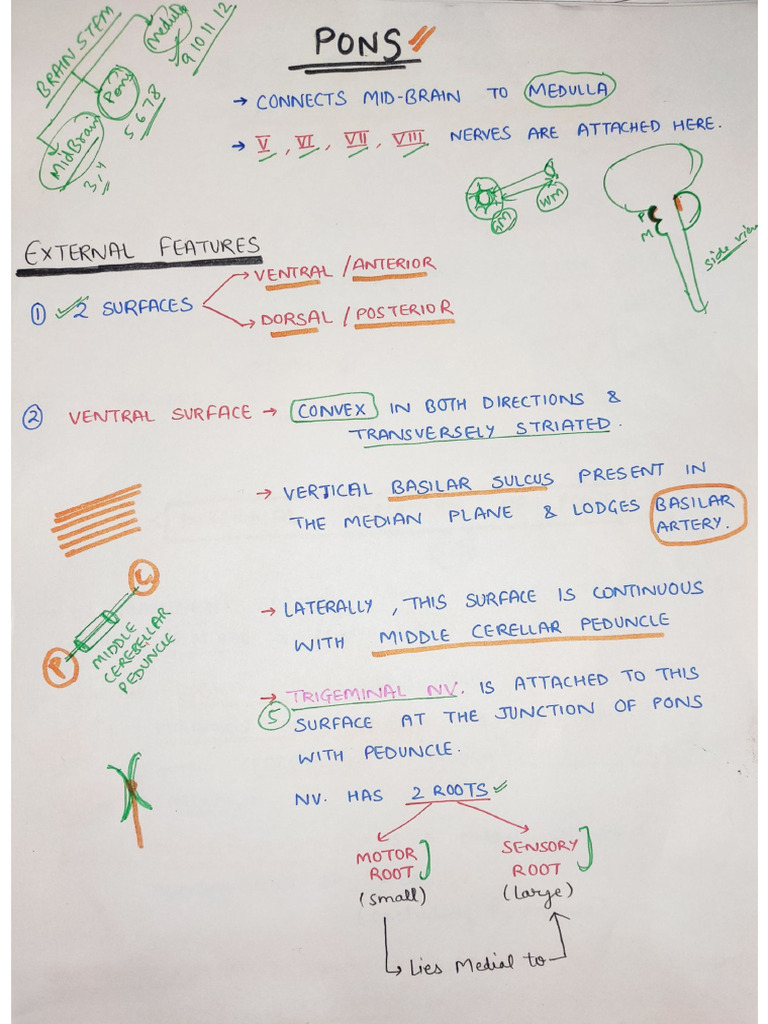 BRAIN STEM
Medulla
9 10 11 12
Pons
5 6 7 8
MidBrain
3,4
PONS
→ CONNECTS MID-BRAIN TO MEDULLA
→ V, VI, VII, VIII NERVES ARE ATTACHED HERE.
GM
WM
P
M
side view
EXTERNAL FEATURES
① 2 SURFACES
→ VENTRAL / ANTERIOR
→ DORSAL / POSTERIOR
② VENTRAL SURFACE → CONVEX IN BOTH DIRECTIONS &
TRANSVERSELY STRIATED.
→ VERTICAL BASILAR SULCUS PRESENT IN
THE MEDIAN PLANE & LODGES BASILAR
ARTERY.
C
P
MIDDLE
CEREBELLAR
PEDUNCLE
→ LATERALLY, THIS SURFACE IS CONTINUOUS
WITH MIDDLE CERELLAR PEDUNCLE
→ TRIGEMINAL NV. IS ATTACHED TO THIS
⑤ SURFACE AT THE JUNCTION OF PONS
WITH PEDUNCLE.
NV. HAS 2 ROOTS
MOTOR
ROOT
(small)
SENSORY
ROOT
(large)
Lies Medial to